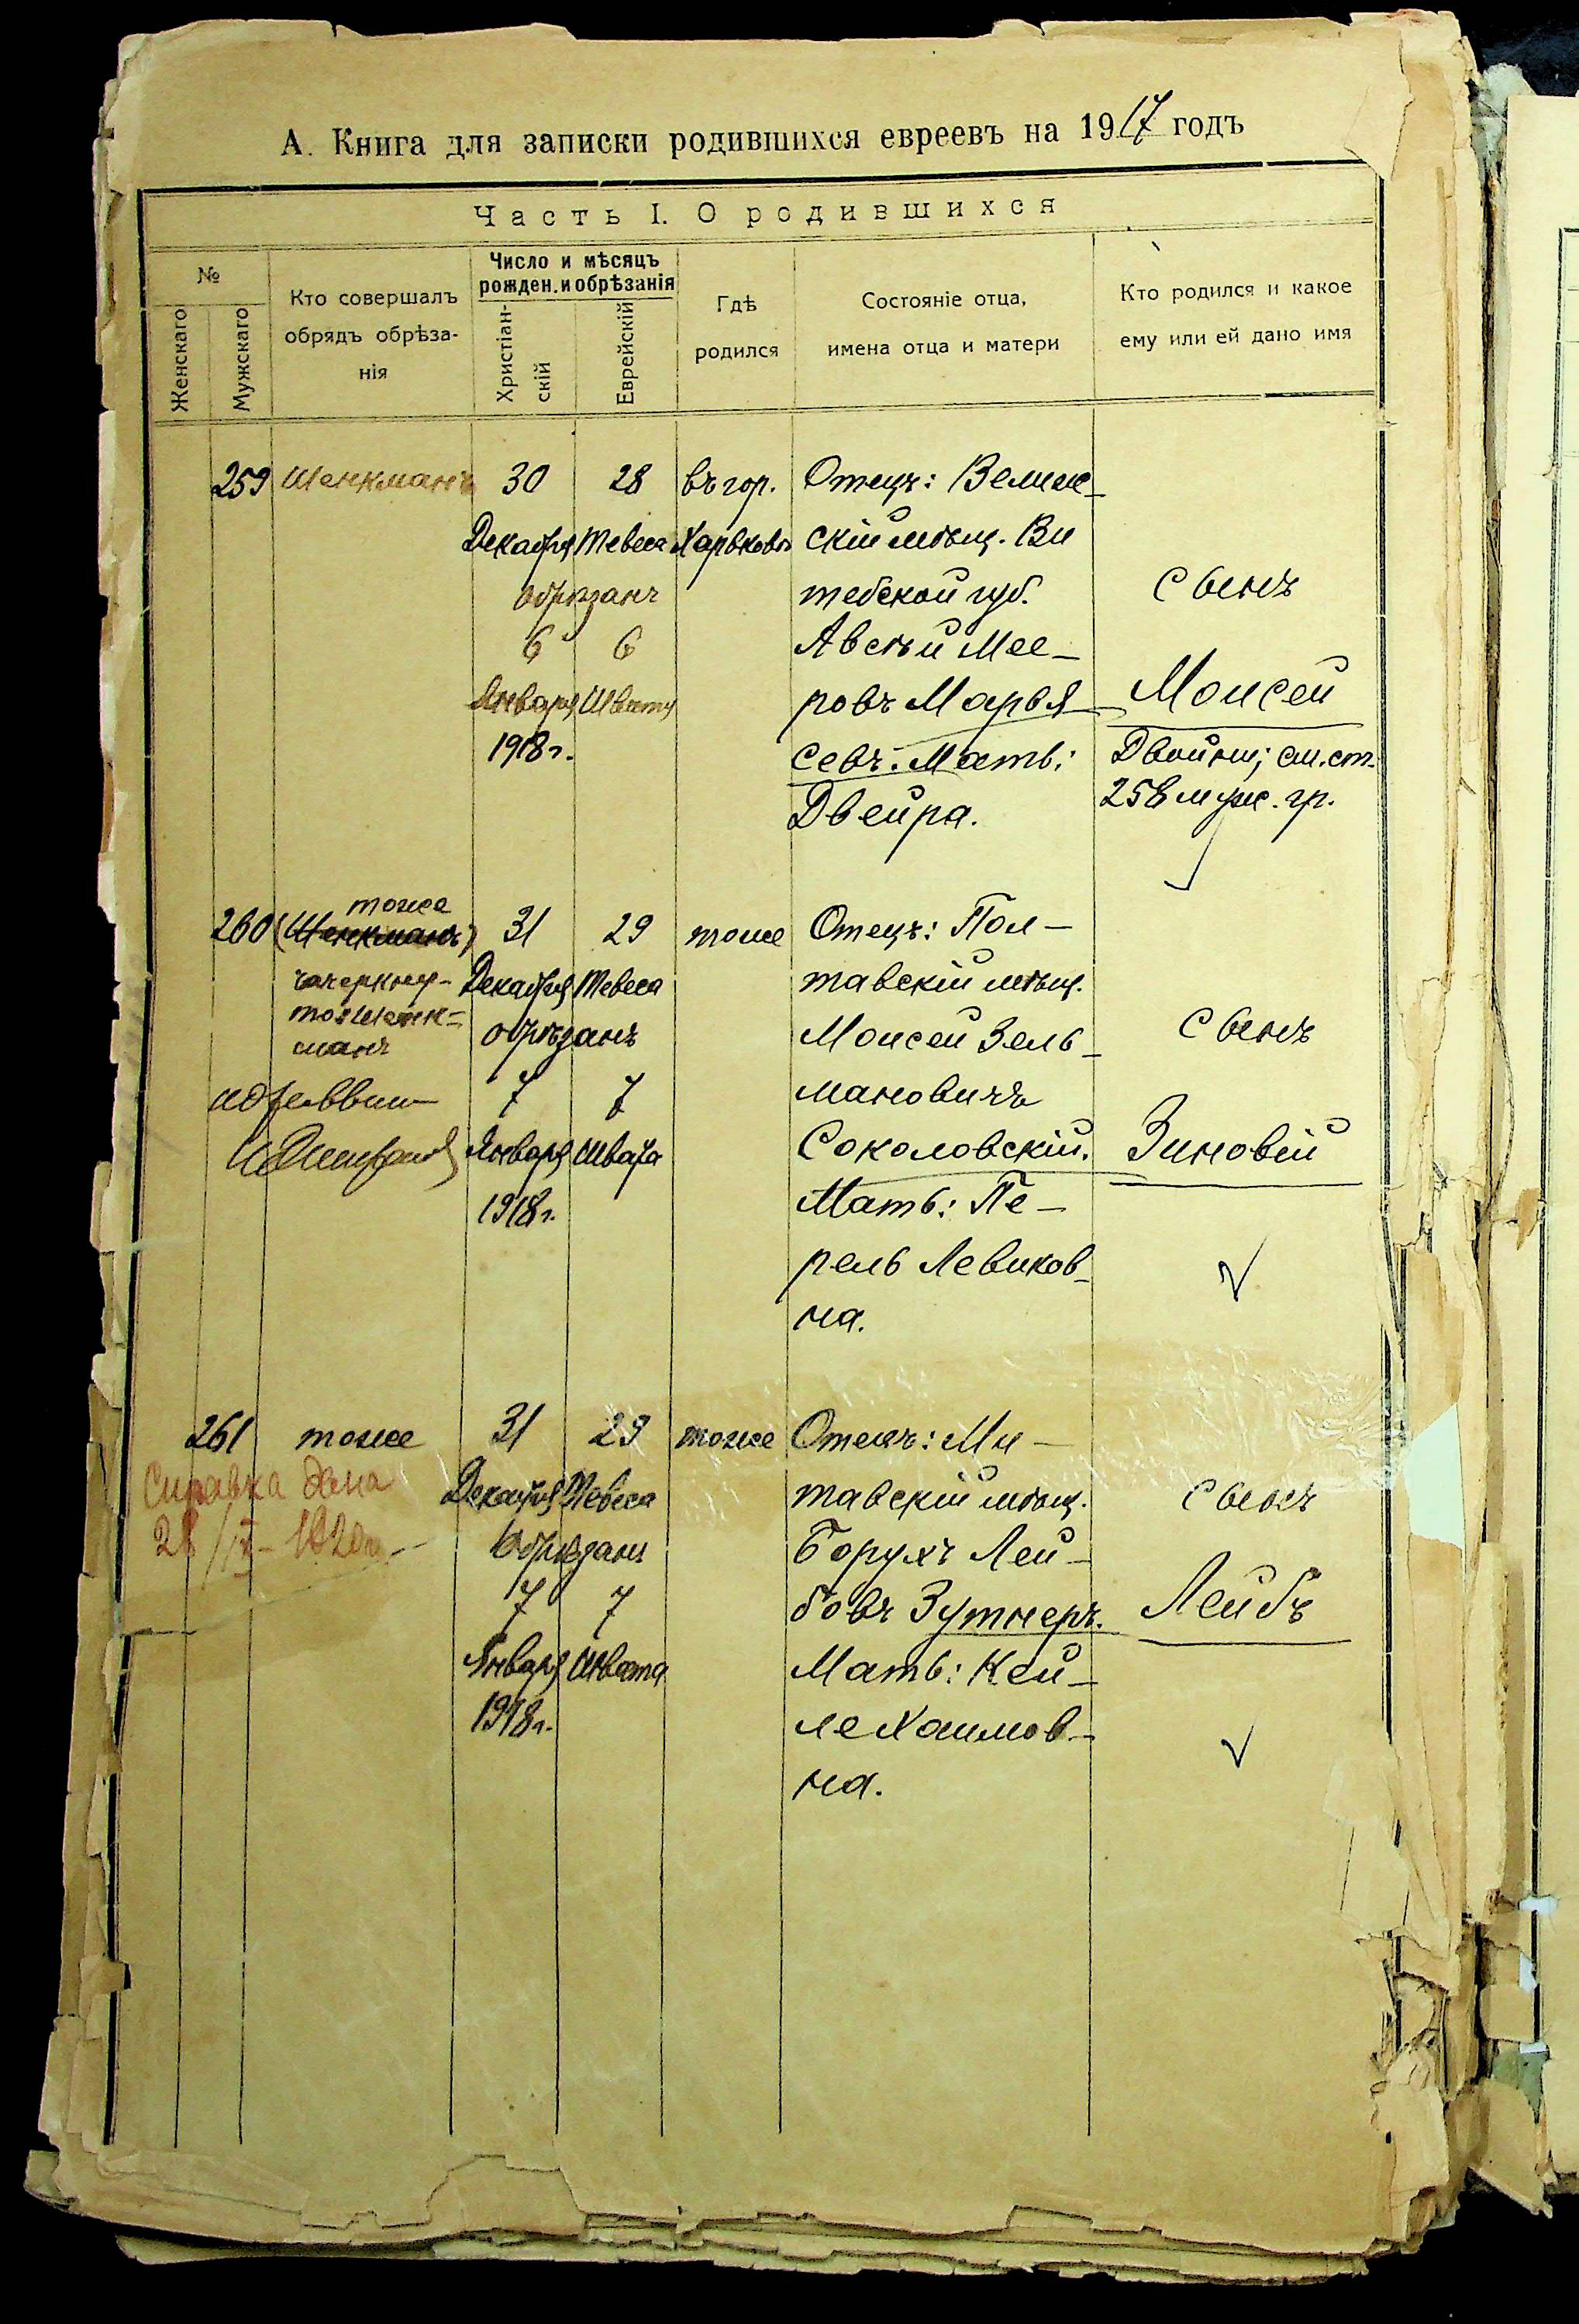 А. Книга для записки родившихся евреевъ на 1917 годъ
Часть I. О родившихся
№
Женскаго
Мужскаго
Кто совершалъ
обрядъ обрѣза-
нія
Число и мѣсяцъ
рожден. и обрѣзанія
Христіан-
скій
Еврейскій
Гдѣ
родился
Состояніе отца,
имена отца и матери
Кто родился и какое
ему или ей дано имя
259
Шенкманъ
30
Декабря
28
Тевеса
обрѣзанъ
6
Января
1918 г.
6
Швата
въ гор.
Харьковѣ
Отецъ: Велиж-
скій мѣщ. Ви
тебской губ.
Авсѣй Мее-
ровъ Марья-
севъ. Мать:
Двейра.
Сынъ
Моисей
Двойни; см. ст.
258 муж. гр.
260
тоже
(Шенкманъ)
зачеркну-
то Шенк-
манъ
31
Декабря
29
Тевеса
обрѣзанъ
7
Января
1918 г.
7
Швата
тоже
Отецъ: Пол-
тавскій мѣщ.
Моисей Зель-
мановичъ
Соколовскій.
Мать: Пе-
рель Левиков-
на.
Сынъ
Зиновій
261
тоже
Справка дана
31
Декабря
29
Тевеса
Обрѣзанъ
7
Января
1918 г.
7
Швата
тоже
Отецъ: Ми-
тавскій мѣщ.
Борухъ Лей-
бовъ Зутнеръ.
Мать: Кей-
ле Хаимов-
на.
Сынъ
Лейбъ